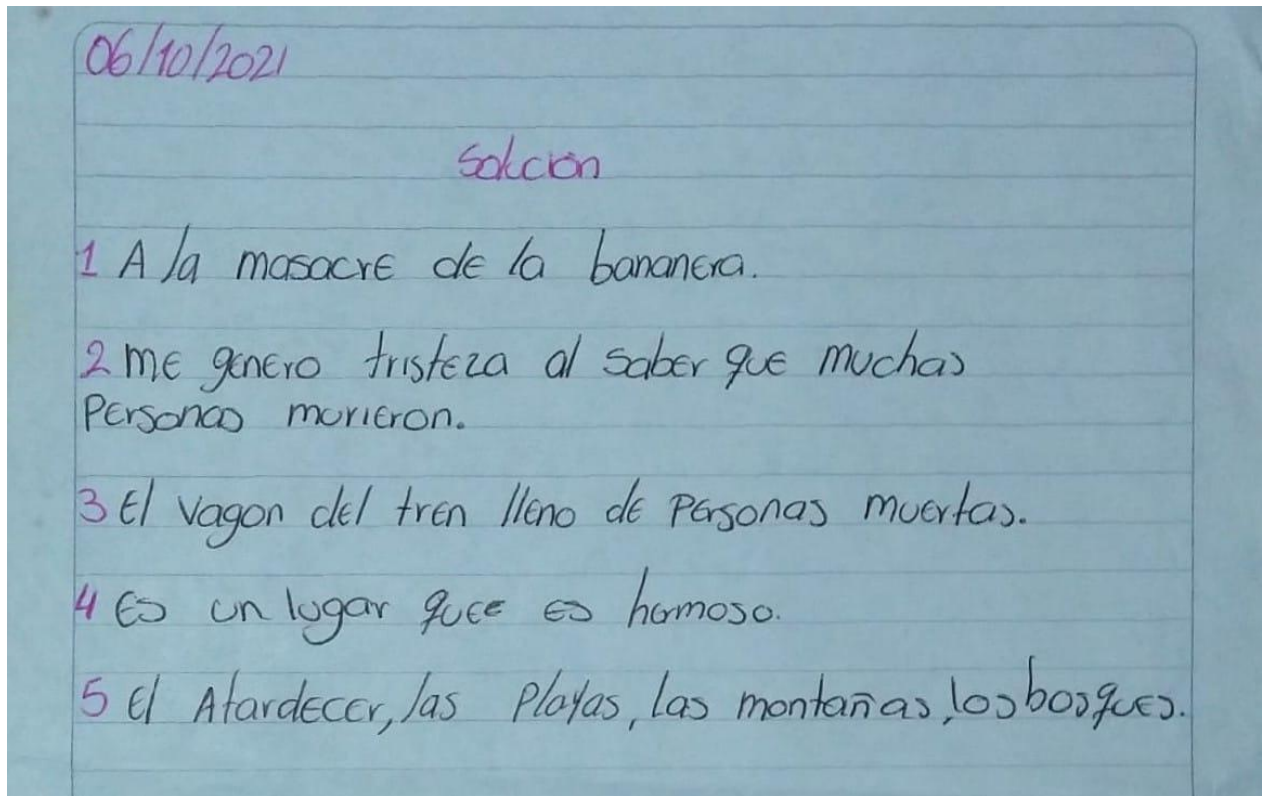 06/10/2021
Solución
1 A la masacre de la bananera.
2 me genero tristeza al saber que muchas
personas murieron.
3 El vagon del tren lleno de personas muertas.
4 Es un lugar quee es hermoso.
5 El Atardecer, las Playas, las montañas, los bosques.